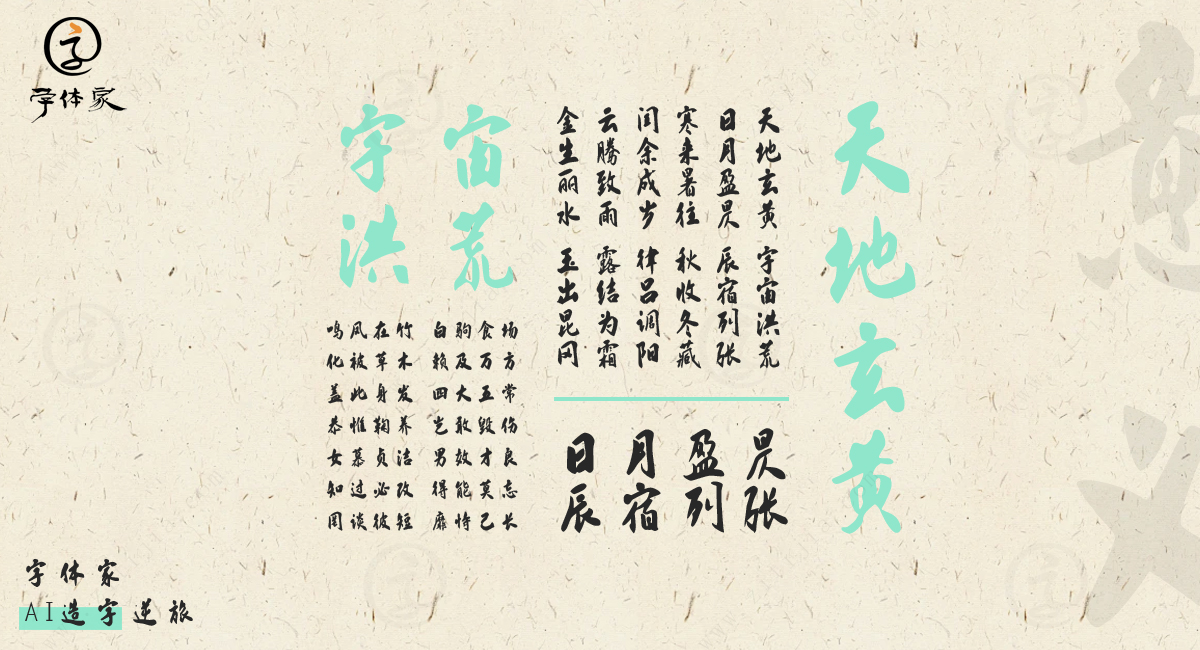 字
字体家
天地玄黄
天地玄黄 宇宙洪荒
日月盈昃 辰宿列张
寒来暑往 秋收冬藏
闰余成岁 律吕调阳
云腾致雨 露结为霜
金生丽水 玉出昆冈
日月盈昃
辰宿列张
宇宙
洪荒
鸣凤在竹 白驹食场
化被草木 赖及万方
盖此身发 四大五常
恭惟鞠养 岂敢毁伤
女慕贞洁 男效才良
知过必改 得能莫忘
罔谈彼短 靡恃己长
字体家
AI造字逆旅